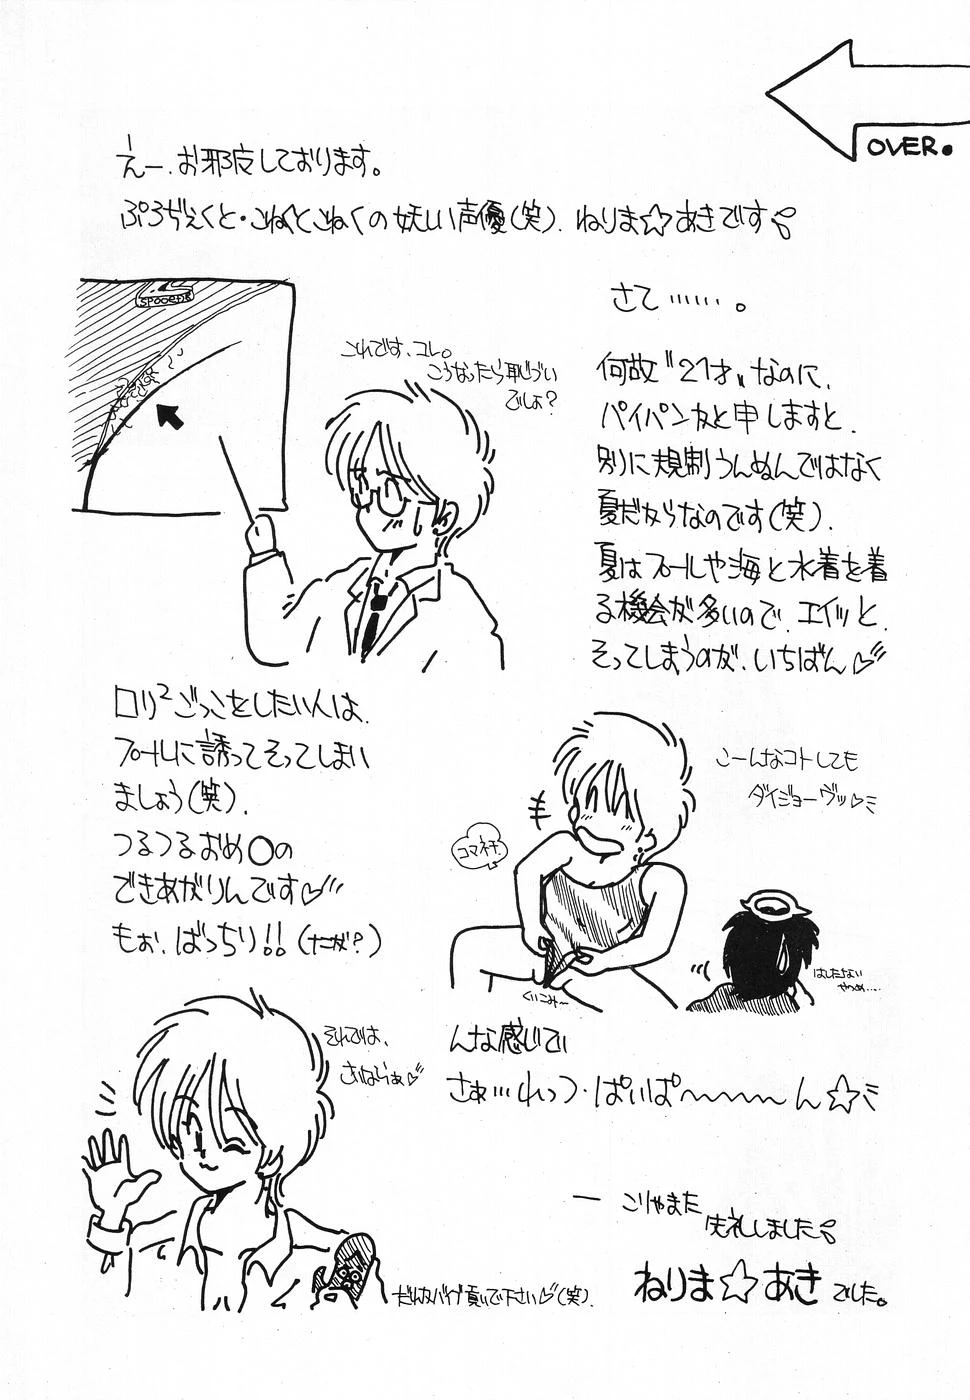 OVER.
えー、お邪魔しております。
ぷろぢぇくと・こねくとこねくの妖しい声優(笑)、ねりま☆あきです♪
さて……。
これでは、コレ。
こうなったら恥づい
でしょ?
何故〝21才〟なのに、
パイパンかと申しますと、
別に規制うんぬんではなく
夏だからなのです(笑)。
夏はプールや海と水着を着
る機会が多いので、エイッと、
そってしまうのが、いちばん♡
ロリ²ごっこをしたい人は、
プールに誘ってそってしまい
ましょう(笑)。
つるつるおめ〇の
できあがりんです♡
もぉ、ばっちり!!(だが?)
こーんなコトしても
ダイジョーヴッ♡ミ
コマネチ
くいこみ〜
はしたない
やつめ……
それでは、
さいならぁ♡
んな感じでい
さぁ…れっつ・ぱいぱ〜〜〜〜ん☆ミ
ー ごりゃまた
失礼しました♪
だれかバイブ買いで下さい♡(笑)。
ねりま☆あき でした。